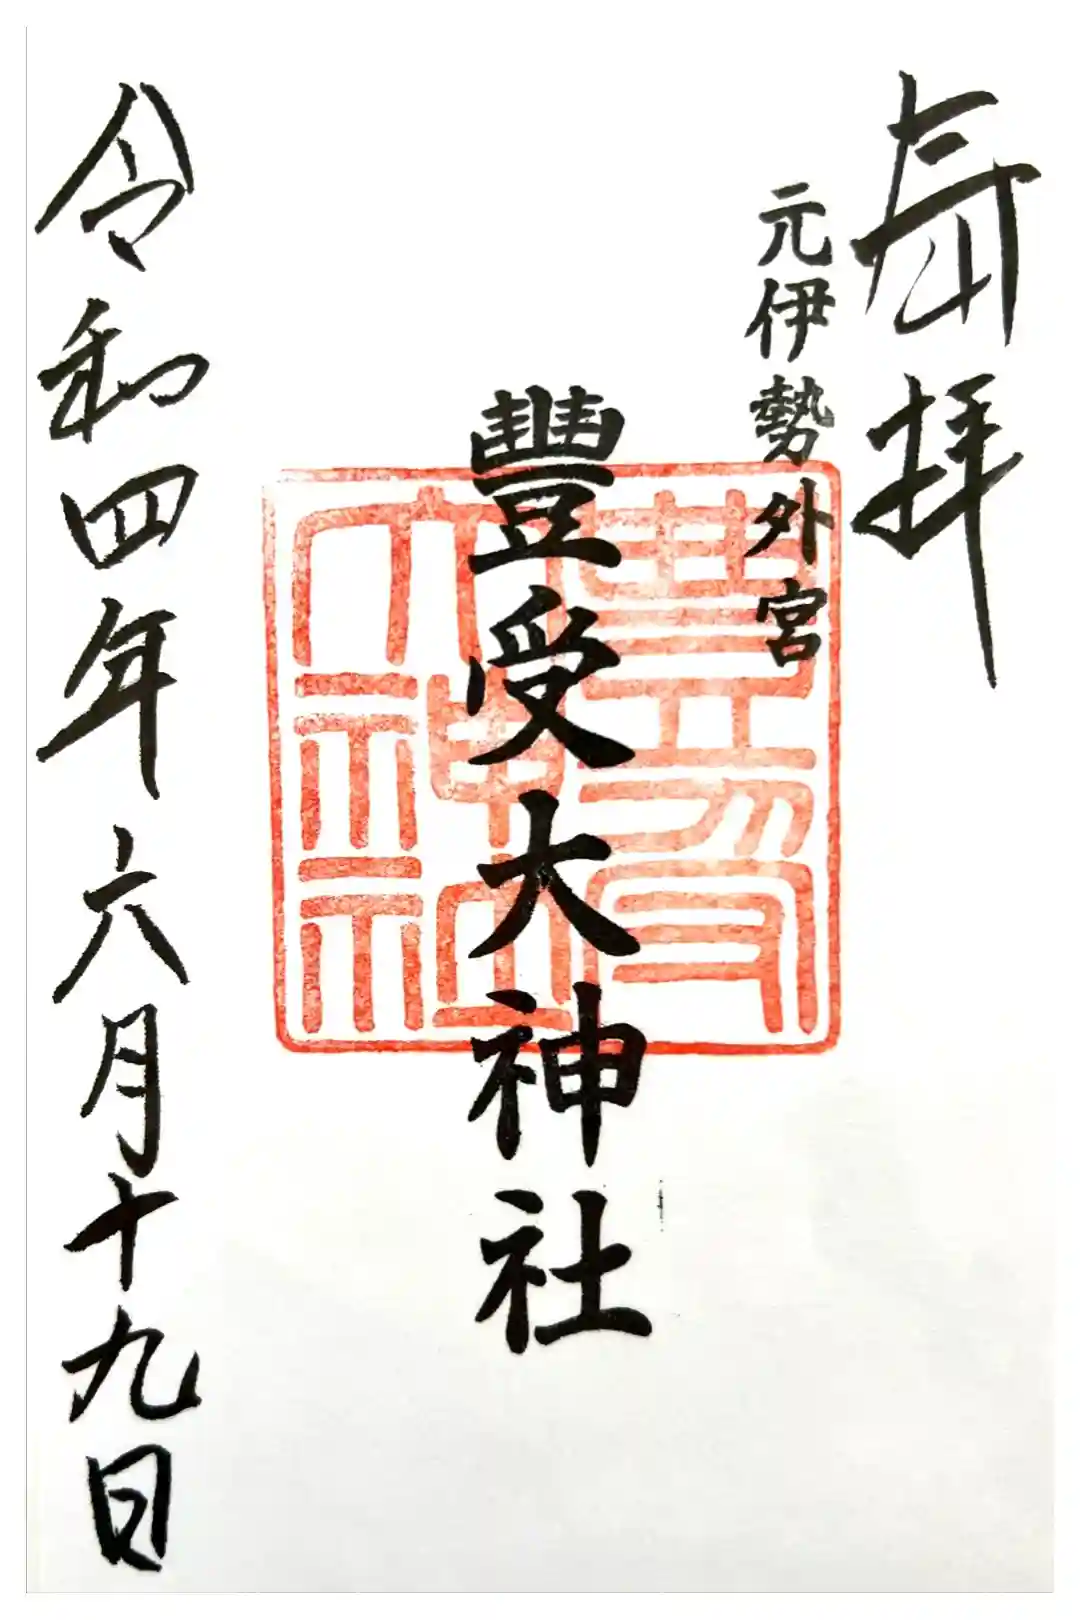 奉拝
元伊勢外宮
豐受大神社
豊受大神社
令和四年六月十九日